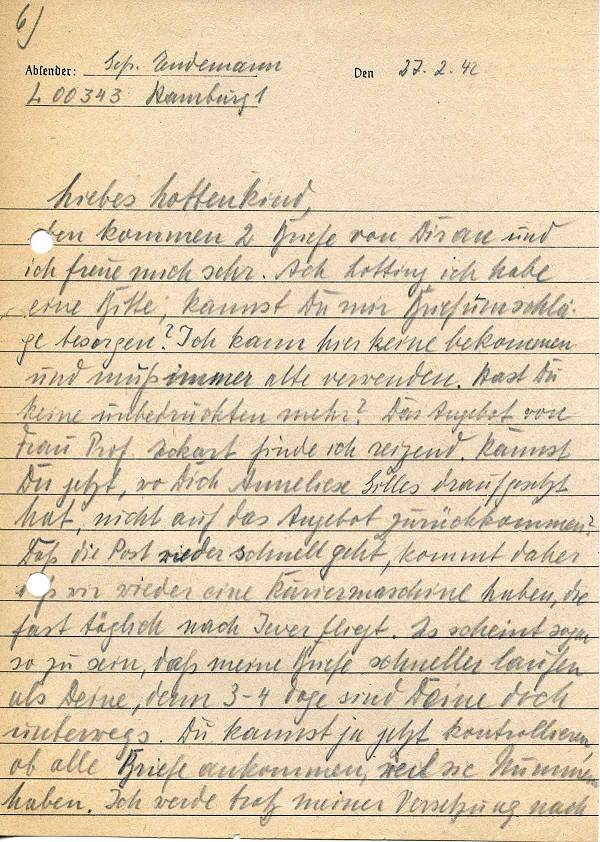 6)
Absender: Gefr. Endemann Den 27.2.42
L 00343 Hamburg 1
Liebes Lottenkind,
eben kommen 2 Briefe von Dir an und
ich freue mich sehr. Ach Lotting ich habe
eine Bitte, kannst Du mir Briefumschlä-
ge besorgen? Ich kann hier keine bekommen
und muß immer alte verwenden. Hast Du
keine unbedruckten mehr? Das Angebot von
Frau Prof. Eckart finde ich reizend. Kannst
Du jetzt, wo Dich Anneliese Gilles draufgesetzt
hat, nicht auf das Angebot zurückkommen?
Daß die Post wieder schnell geht, kommt daher
daß wir wieder eine Kuriermaschine haben, die
fast täglich nach Jever fliegt. Es scheint sogar
so zu sein, daß meine Briefe schneller laufen
als Deine, denn 3-4 Tage sind Deine doch
unterwegs. Du kannst ja jetzt kontrollieren,
ob alle Briefe ankommen, weil sie Nummern
haben. Ich werde trotz meiner Versetzung nach